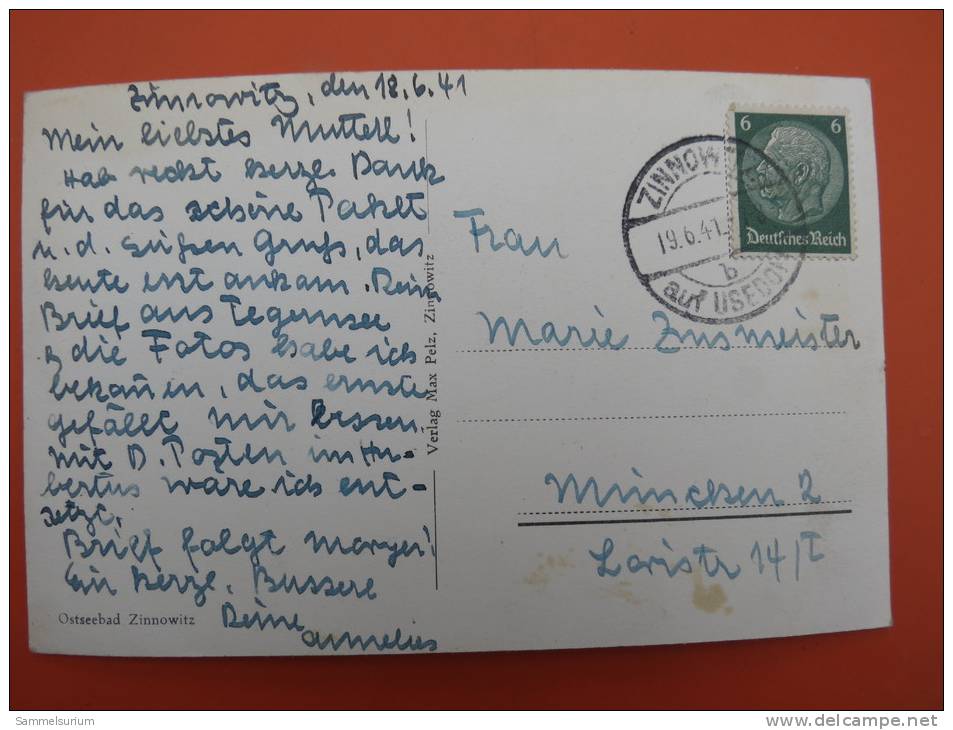 Zinnowitz, den 18.6.41
Mein liebstes Mutterl!
Hab recht herzl. Dank
für das schöne Paket
u. d. süßen Gruß, das
heute erst ankam. Dein
Brief aus Tegernsee
& die Fotos habe ich
bekommen, das ernste
gefällt mir besser.
Mit D. Posten im Hu-
bertus wäre ich ent-
setzt.
Brief folgt morgen!
Ein herzl. Busserl
Deine
Annelies
Ostseebad Zinnowitz
Verlag Max Pelz, Zinnowitz
6 6
Deutsches Reich
ZINNOW
19.6.41.
b
auf USEDOM
Frau
Marie Zusmeister
München 2
Loristr 14/I
Sammelsurium
www.delcampe.net